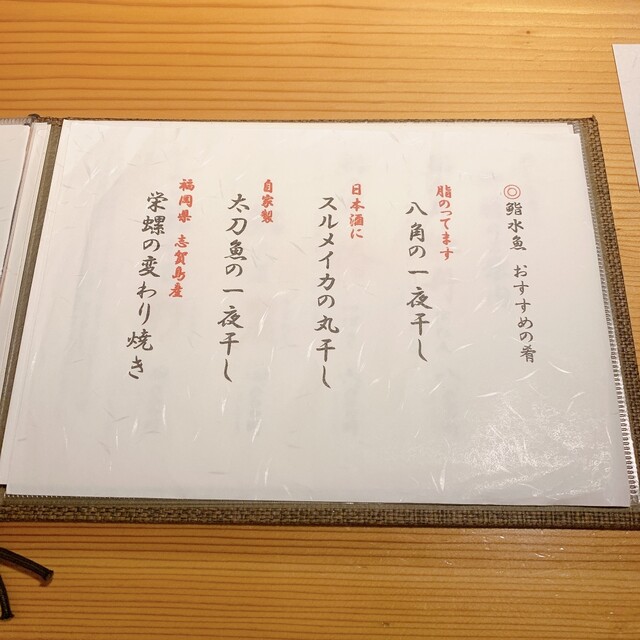 ◎鮨水魚 おすすめの肴
脂のってます
八角の一夜干し
日本酒に
スルメイカの丸干し
自家製
太刀魚の一夜干し
福岡県 志賀島産
栄螺の変わり焼き